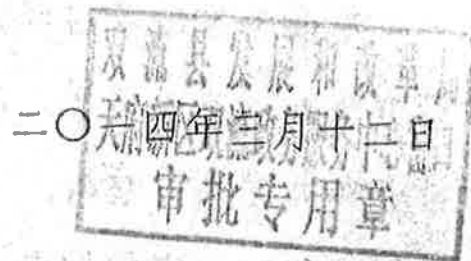 双流县发展和改革局
二〇一四年三月十二日
审批专用章